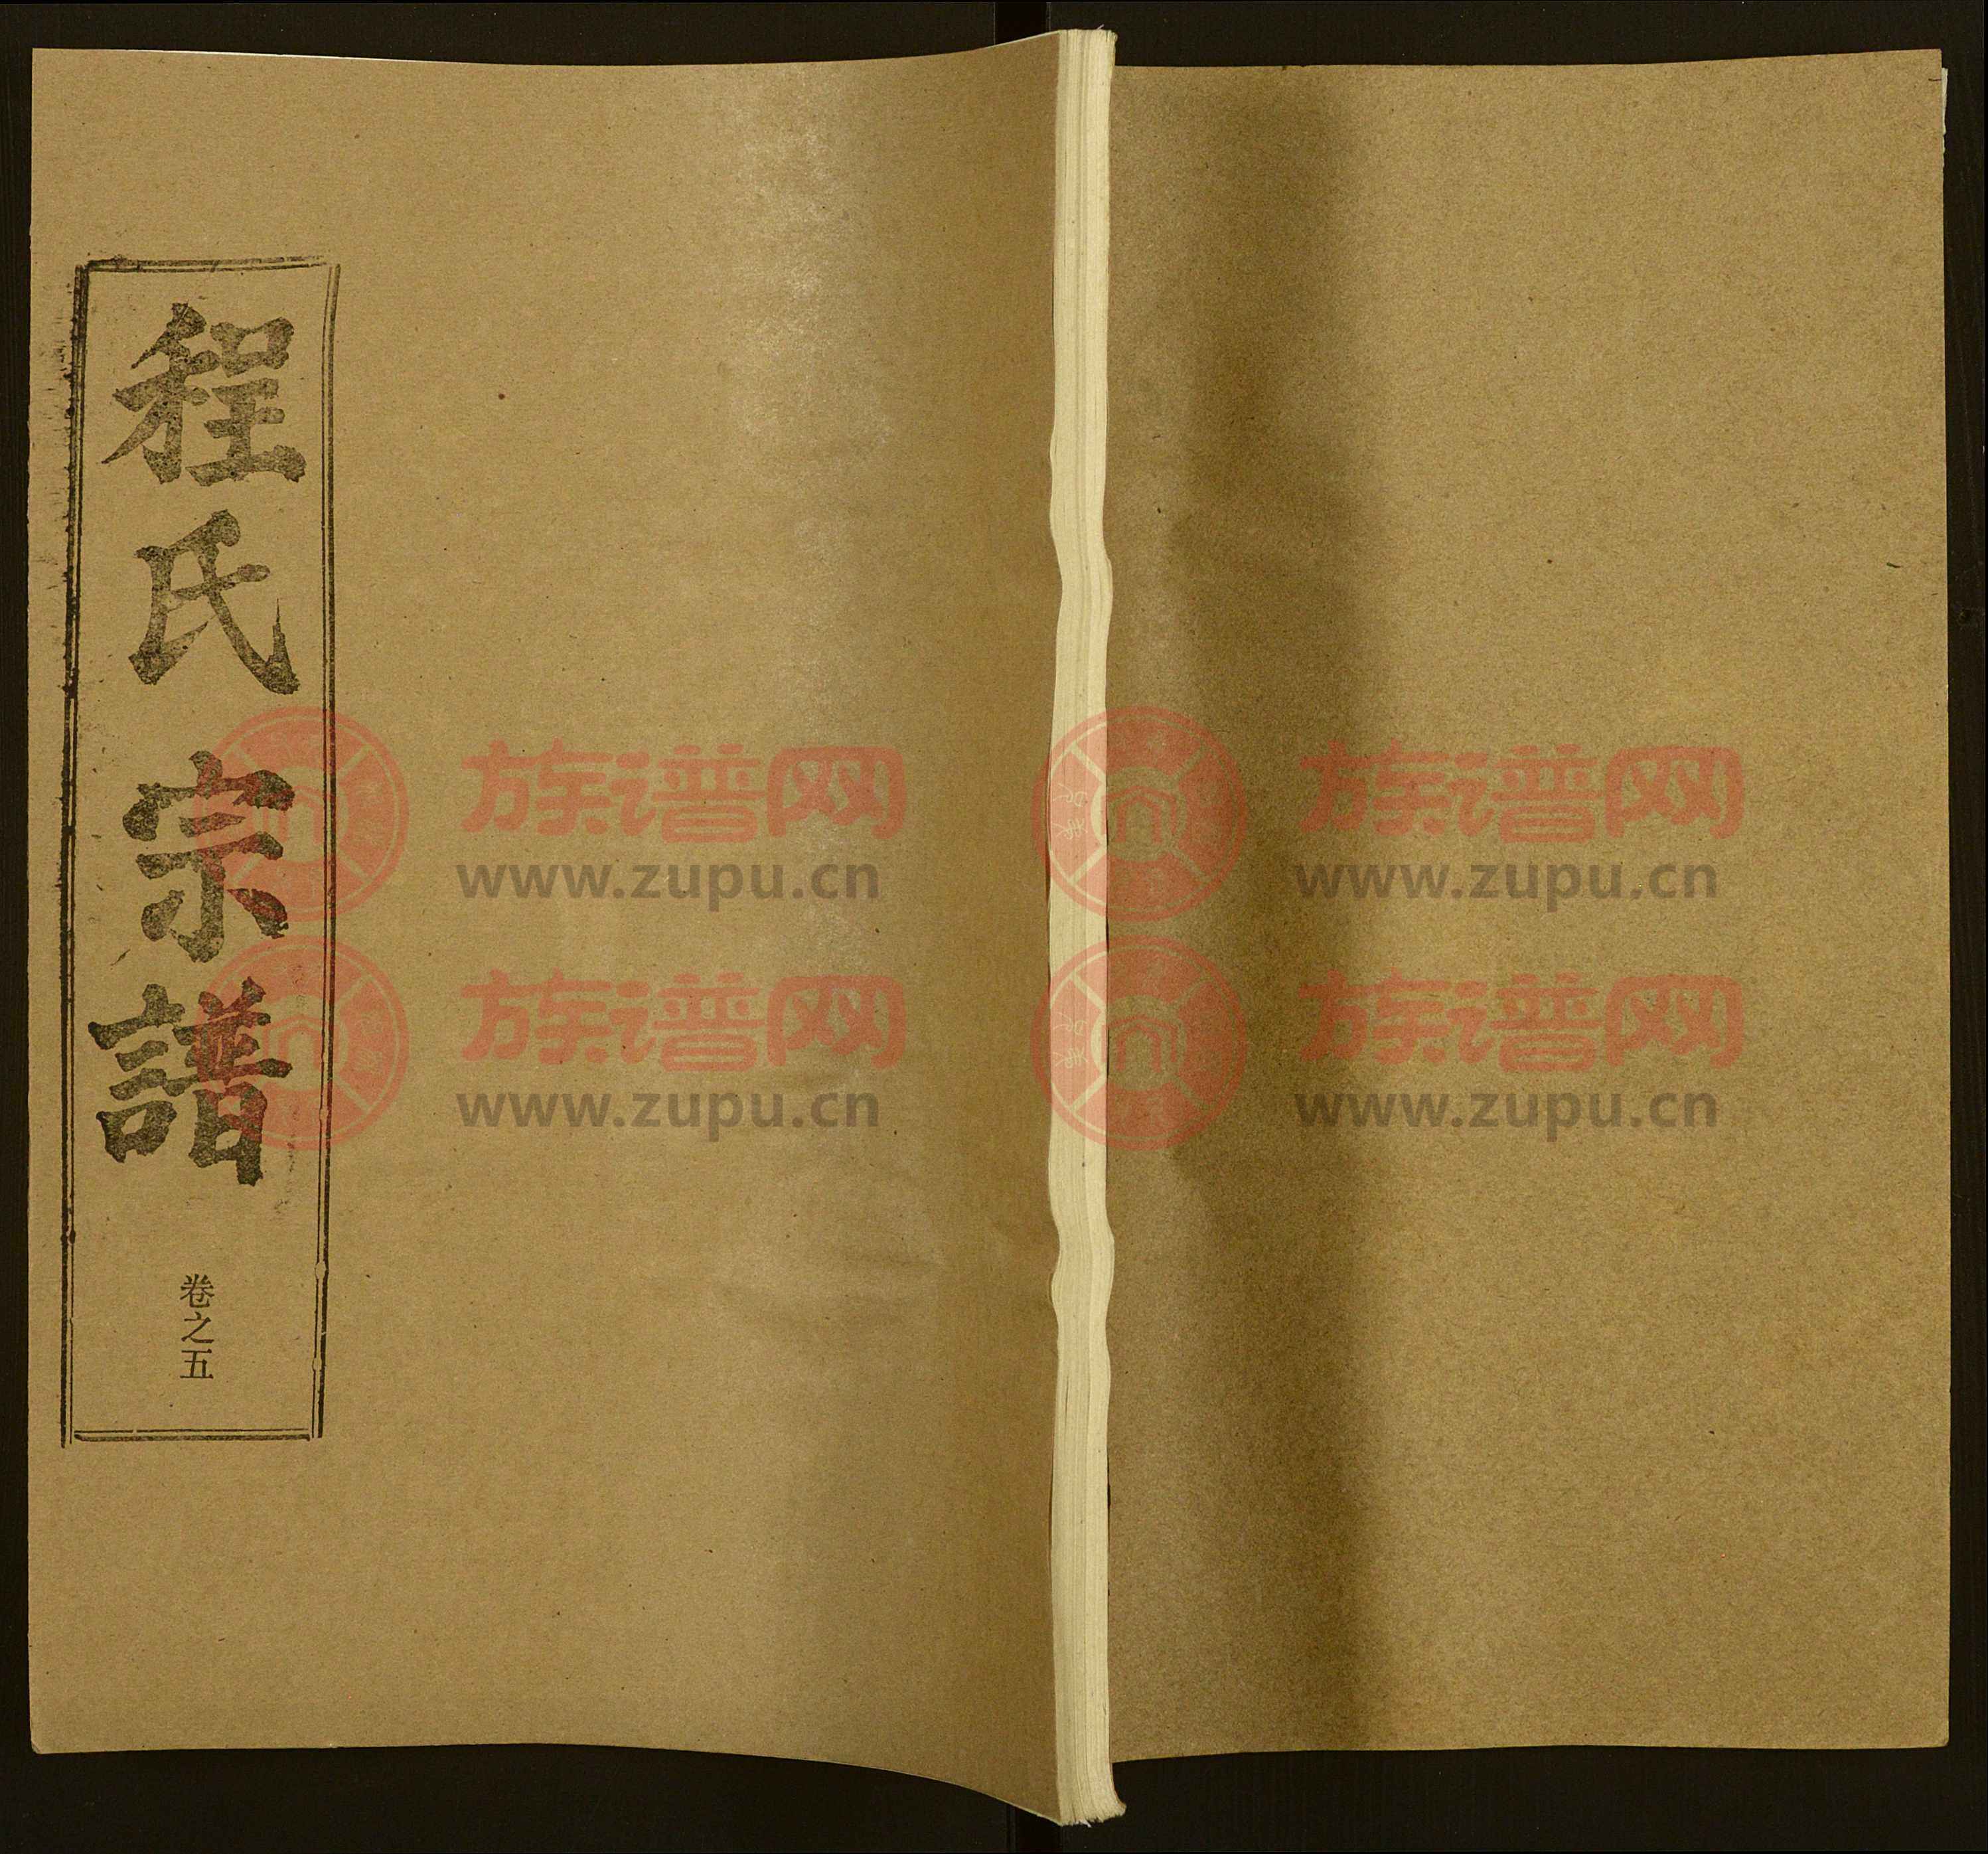 程氏宗譜
卷之五
族谱网
www.zupu.cn
族谱网
www.zupu.cn
族谱网
www.zupu.cn
族谱网
www.zupu.cn